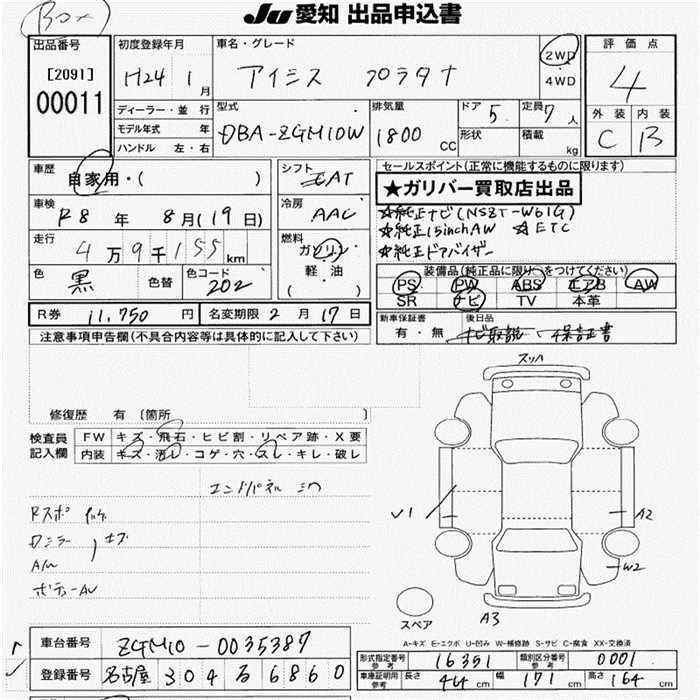 BOX
JU 愛知 出品申込書
出品番号
[2091]
00011
初度登録年月
H24 1 月
車名・グレード
アイシス プラタナ
2WD
4WD
評価点
4
外装 内装
C B
ディーラー・並行
モデル年式 年
ハンドル 左・右
型式
DBA-ZGM10W
排気量
1800 CC
ドア
5
定員
7 人
形状
積載
kg
車歴
自家用・( )
車検
R8 年 8 月(19日)
走行
4万9千155km
色
黒
色替
色コード
202
シフト
CAT
冷房
AAC
燃料
ガソリン
軽油
( )
セールスポイント(正常に機能するものに限ります)
★ガリバー買取店出品
☆純正ナビ(NSZT-W61G)
☆純正15inchAW ☆ETC
☆純正ドアバイザー
装備品(純正品に限り○をつけてください)
PS PW ABS エアB AW
SR ナビ TV 本革
R券 11,750 円
名変期限 2 月 17 日
新車保証書
有・無
後日品
ナビ取説 保証書
注意事項申告欄(不具合内容等は具体的に記入して下さい)
修復歴 有 〔箇所 〕
検査員
記入欄
FW キズ・飛石・ヒビ割・リペア跡・X要
内装 キズ・汚レ・コゲ・穴・スレ・キレ・破レ
エンドパネル
Rスポ
Dミラー キズ
A/W
ボディーAU
スリハ
V1
A2
W2
A3
スペア
A-キズ E-エクボ U-凹み W-補修跡 S-サビ C-腐食 XX-交換済
車台番号 ZGM10-0035387
登録番号 名古屋 304 る 6860
形式指定番号
参考
16351
類別区分番号
参考
0001
車庫証明用
参考
長さ 464 cm
幅 171 cm
高さ 164 cm